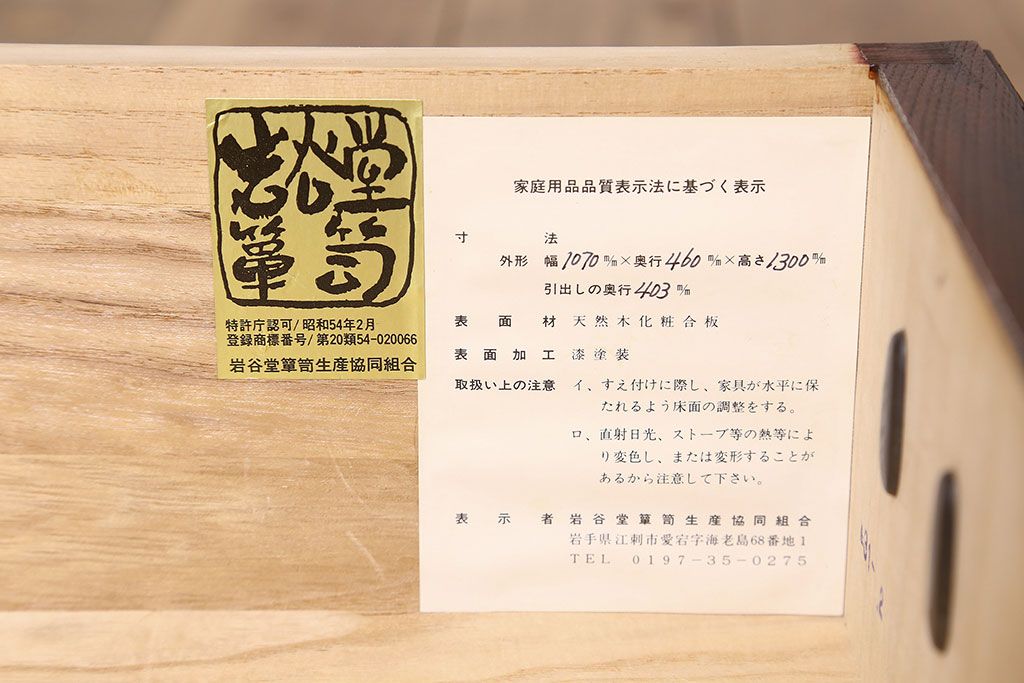 岩谷堂
簞笥
特許庁認可/昭和54年2月
登録商標番号/第20類54-020066
岩谷堂簞笥生産協同組合
家庭用品品質表示法に基づく表示
寸法
外形 幅1070 ㎜×奥行460 ㎜×高さ1300㎜
引出しの奥行403 ㎜
表面材 天然木化粧合板
表面加工 漆塗装
取扱い上の注意 イ、すえ付けに際し、家具が水平に保
たれるよう床面の調整をする。
ロ、直射日光、ストーブ等の熱等によ
り変色し、または変形することが
あるから注意して下さい。
表示者 岩谷堂簞笥生産協同組合
岩手県江刺市愛宕字海老島68番地1
TEL 0197-35-0275